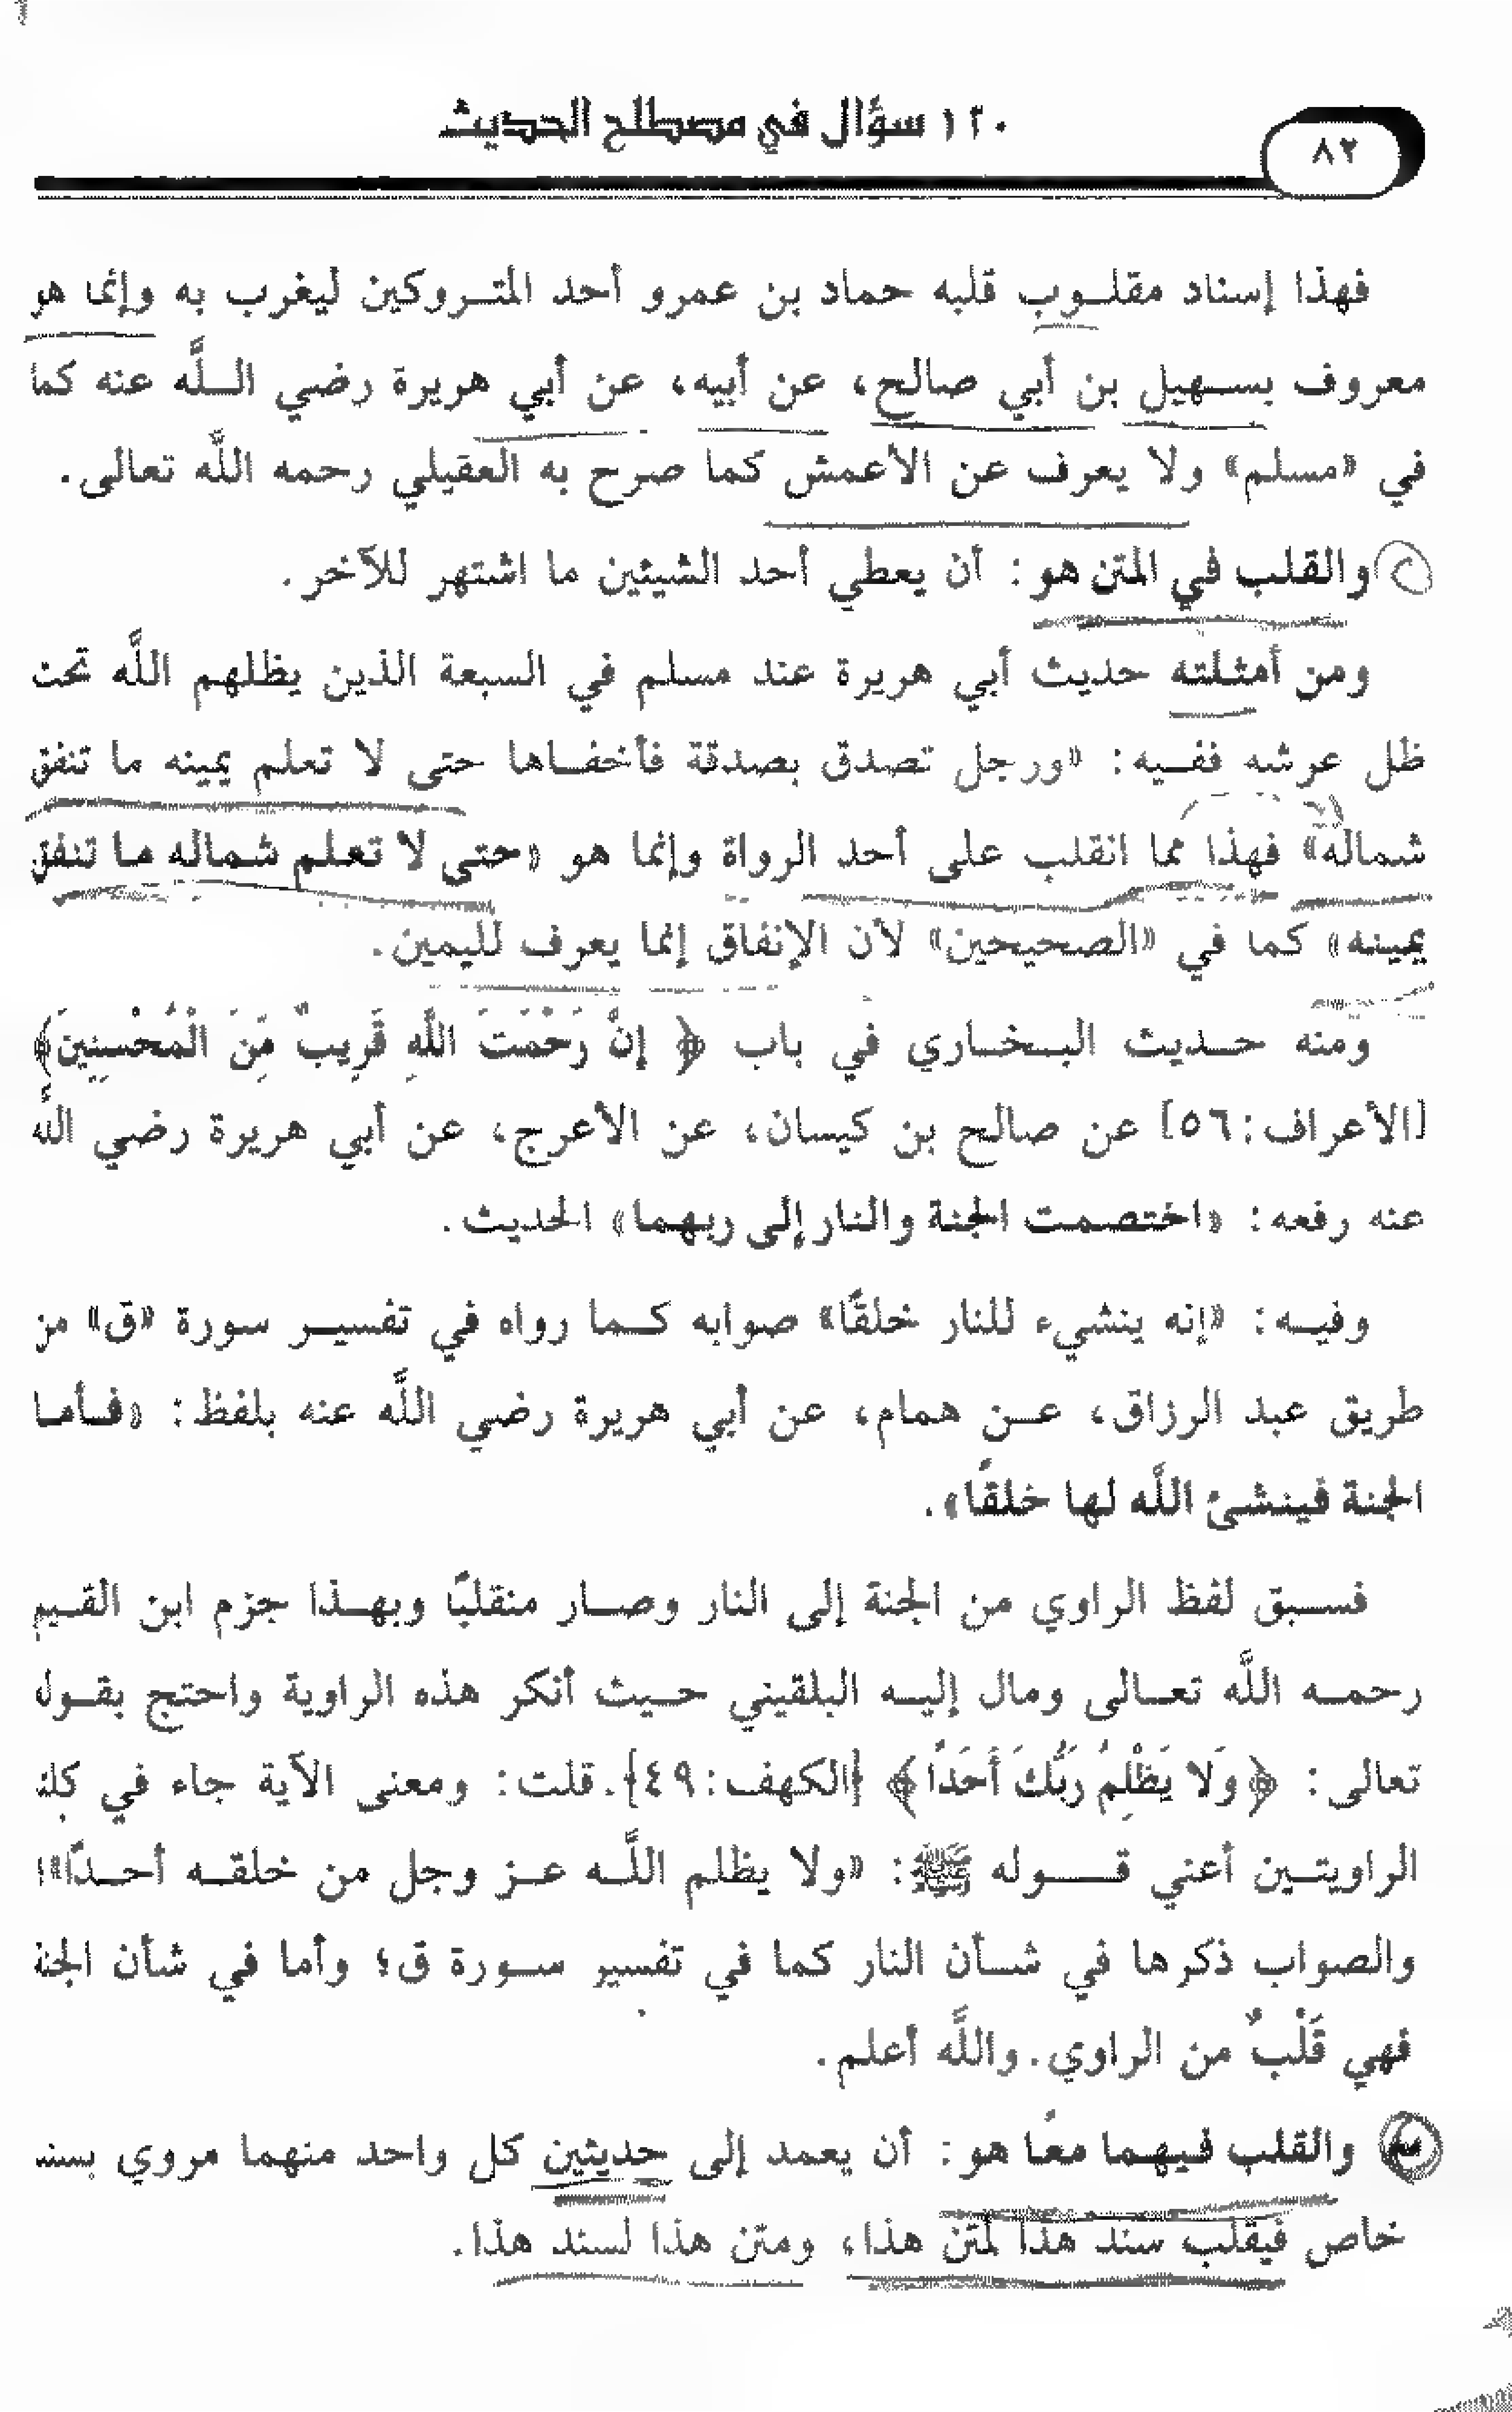 ١٢٠ سؤال في مصطلح الحديث
٨٢
فهذا إسناد مقلـوب قلبه حماد بن عمرو أحد المتـروكين ليغرب به وإنما هو
معروف بسـهيل بن أبي صالح، عن أبيه، عن أبي هريرة رضي الـلَّه عنه كما
في «مسلم» ولا يعرف عن الأعمش كما صرح به العقيلي رحمه اللَّه تعالى.
والقلب في المتن هو: أن يعطي أحد الشيئين ما اشتهر للآخر.
ومن أمثلته حديث أبي هريرة عند مسلم في السبعة الذين يظلهم اللَّه تحت
ظل عرشه ففـيه: «ورجل تصدق بصدقة فأخفـاها حتى لا تعلم يمينه ما تنفق
شماله» فهذا مما انقلب على أحد الرواة وإنما هو «حتى لا تعلم شماله ما تنفق
يمينه» كما في «الصحيحين» لأن الإنفاق إنما يعرف لليمين.
ومنه حـديث البـخـاري في باب ﴿ إِنَّ رَحْمَتَ اللَّهِ قَرِيبٌ مِّنَ الْمُحْسِنِينَ﴾
[الأعراف:٥٦] عن صالح بن كيسان، عن الأعرج، عن أبي هريرة رضي اللَّه
عنه رفعه: «اختصمت الجنة والنار إلى ربهما» الحديث.
وفيـه: «إنه ينشيء للنار خلقًا» صوابه كـما رواه في تفسيـر سورة «ق» من
طريق عبد الرزاق، عـن همام، عن أبي هريرة رضي اللَّه عنه بلفظ: «فـأمـا
الجنة فينشئ اللَّه لها خلقًا».
فسـبق لفظ الراوي من الجنة إلى النار وصـار منقلبًا وبهـذا جزم ابن القـيم
رحمـه اللَّه تعـالى ومال إليـه البلقيني حـيث أنكر هذه الراوية واحتج بقـول
تعالى: ﴿وَلا يَظْلِمُ رَبُّكَ أَحَدًا﴾ [الكهف:٤٩]. قلت: ومعنى الآية جاء في
الراويتـين أعني قـــوله ﷺ: «ولا يظلم اللَّـه عـز وجل من خلقـه أحـدًا»
والصواب ذكرها في شـأن النار كما في تفسير سـورة ق؛ وأما في شأن الجنة
فهي قَلْبٌ من الراوي. واللَّه أعلم.
والقلب فـيهـما معًا هو: أن يعمد إلى حديثين كل واحد منهما مروي بسند
خاص فيقلب سند هذا لمتن هذا، ومتن هذا لسند هذا.